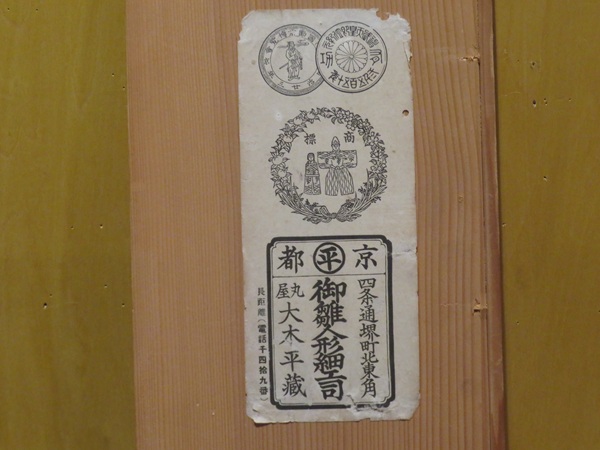 商標
京㊥都
四条通堺町北東角
御雛人形細工司
丸屋
大木平藏
長距離(電話千四拾九番)